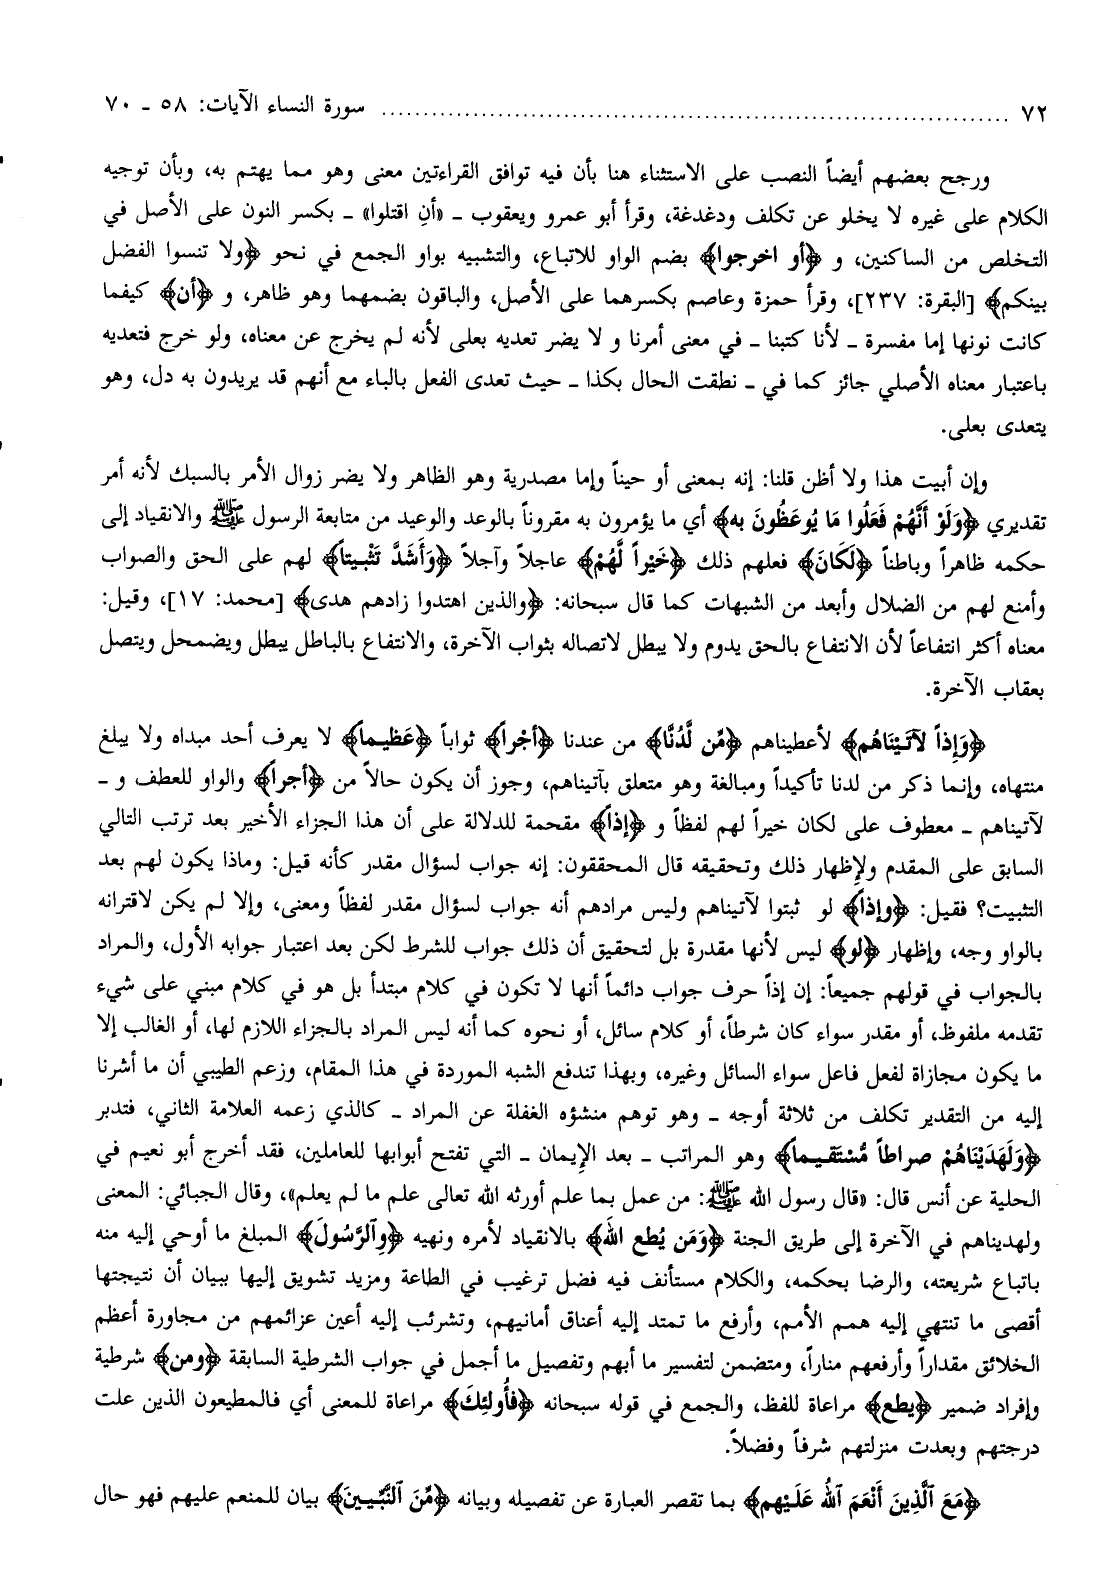 ٧٢ ........................................................ سورة النساء الآيات: ٥٨ ـ ٧٠
ورجح بعضهم أيضاً النصب على الاستثناء هنا بأن فيه توافق القراءتين معنى وهو مما يهتم به، وبأن توجيه
الكلام على غيره لا يخلو عن تكلف ودغدغة، وقرأ أبو عمرو ويعقوب ـ «أنِ اقتلوا» ـ بكسر النون على الأصل في
التخلص من الساكنين، و ﴿أو اخرجوا﴾ بضم الواو للاتباع، والتشبيه بواو الجمع في نحو ﴿ولا تنسوا الفضل
بينكم﴾ [البقرة: ٢٣٧]، وقرأ حمزة وعاصم بكسرهما على الأصل، والباقون بضمهما وهو ظاهر، و ﴿أن﴾ كيفما
كانت نونها إما مفسرة ـ لأنا كتبنا ـ في معنى أمرنا و لا يضر تعديه بعلى لأنه لم يخرج عن معناه، ولو خرج فتعديه
باعتبار معناه الأصلي جائز كما في ـ نطقت الحال بكذا ـ حيث تعدى الفعل بالباء مع أنهم قد يريدون به دل، وهو
يتعدى بعلى.
وإن أبيت هذا ولا أظن قلنا: إنه بمعنى أو حيناً وإما مصدرية وهو الظاهر ولا يضر زوال الأمر بالسبك لأنه أمر
تقديري ﴿وَلَوْ أَنَّهُمْ فَعَلُوا مَا يُوعَظُونَ به﴾ أي ما يؤمرون به مقروناً بالوعد والوعيد من متابعة الرسول ﷺ والانقياد إلى
حكمه ظاهراً وباطناً ﴿لَكَانَ﴾ فعلهم ذلك ﴿خَيْراً لَّهُمْ﴾ عاجلاً وآجلاً ﴿وَأَشَدَّ تَثْبيتاً﴾ لهم على الحق والصواب
وأمنع لهم من الضلال وأبعد من الشبهات كما قال سبحانه: ﴿والذين اهتدوا زادهم هدى﴾ [محمد: ١٧]، وقيل:
معناه أكثر انتفاعاً لأن الانتفاع بالحق يدوم ولا يبطل لاتصاله بثواب الآخرة، والانتفاع بالباطل يبطل ويضمحل ويتصل
بعقاب الآخرة.
﴿وَإِذاً لآتَيْنَاهُم﴾ لأعطيناهم ﴿مِّن لَّدُنَّا﴾ من عندنا ﴿أَجْراً﴾ ثواباً ﴿عَظيماً﴾ لا يعرف أحد مبداه ولا يبلغ
منتهاه، وإنما ذكر من لدنا تأكيداً ومبالغة وهو متعلق بآتيناهم، وجوز أن يكون حالاً من ﴿أجراً﴾ والواو للعطف و ـ
لآتيناهم ـ معطوف على لكان خيراً لهم لفظاً و ﴿إذاً﴾ مقحمة للدلالة على أن هذا الجزاء الأخير بعد ترتب التالي
السابق على المقدم ولإظهار ذلك وتحقيقه قال المحققون: إنه جواب لسؤال مقدر كأنه قيل: وماذا يكون لهم بعد
التثبيت؟ فقيل: ﴿وإذاً﴾ لو ثبتوا لآتيناهم وليس مرادهم أنه جواب لسؤال مقدر لفظاً ومعنى، وإلا لم يكن لاقترانه
بالواو وجه، وإظهار ﴿لو﴾ ليس لأنها مقدرة بل لتحقيق أن ذلك جواب للشرط لكن بعد اعتبار جوابه الأول، والمراد
بالجواب في قولهم جميعاً: إن إذاً حرف جواب دائماً أنها لا تكون في كلام مبتدأ بل هو في كلام مبني على شيء
تقدمه ملفوظ، أو مقدر سواء كان شرطاً، أو كلام سائل، أو نحوه كما أنه ليس المراد بالجزاء اللازم لها، أو الغالب إلا
ما يكون مجازاة لفعل فاعل سواء السائل وغيره، وبهذا تندفع الشبه الموردة في هذا المقام، وزعم الطيبي أن ما أشرنا
إليه من التقدير تكلف من ثلاثة أوجه ـ وهو توهم منشؤه الغفلة عن المراد ـ كالذي زعمه العلامة الثاني، فتدبر
﴿وَلَهَدَيْنَاهُمْ صراطاً مُّسْتَقيماً﴾ وهو المراتب ـ بعد الإيمان ـ التي تفتح أبوابها للعاملين، فقد أخرج أبو نعيم في
الحلية عن أنس قال: «قال رسول الله ﷺ: من عمل بما علم أورثه الله تعالى علم ما لم يعلم»، وقال الجبائي: المعنى
ولهديناهم في الآخرة إلى طريق الجنة ﴿وَمَن يُطع اللهَ﴾ بالانقياد لأمره ونهيه ﴿وٱلرَّسُولَ﴾ المبلغ ما أوحي إليه منه
باتباع شريعته، والرضا بحكمه، والكلام مستأنف فيه فضل ترغيب في الطاعة ومزيد تشويق إليها ببيان أن نتيجتها
أقصى ما تنتهي إليه همم الأمم، وأرفع ما تمتد إليه أعناق أمانيهم، وتشرئب إليه أعين عزائمهم من مجاورة أعظم
الخلائق مقداراً وأرفعهم مناراً، ومتضمن لتفسير ما أبهم وتفصيل ما أجمل في جواب الشرطية السابقة ﴿ومن﴾ شرطية
وإفراد ضمير ﴿يطع﴾ مراعاة للفظ، والجمع في قوله سبحانه ﴿فأُولئِكَ﴾ مراعاة للمعنى أي فالمطيعون الذين علت
درجتهم وبعدت منزلتهم شرفاً وفضلاً.
﴿مَعَ ٱلَّذينَ أَنْعَمَ ٱللهُ عَلَيْهم﴾ بما تقصر العبارة عن تفصيله وبيانه ﴿مِّنَ ٱلنَّبِيِّينَ﴾ بيان للمنعم عليهم فهو حال